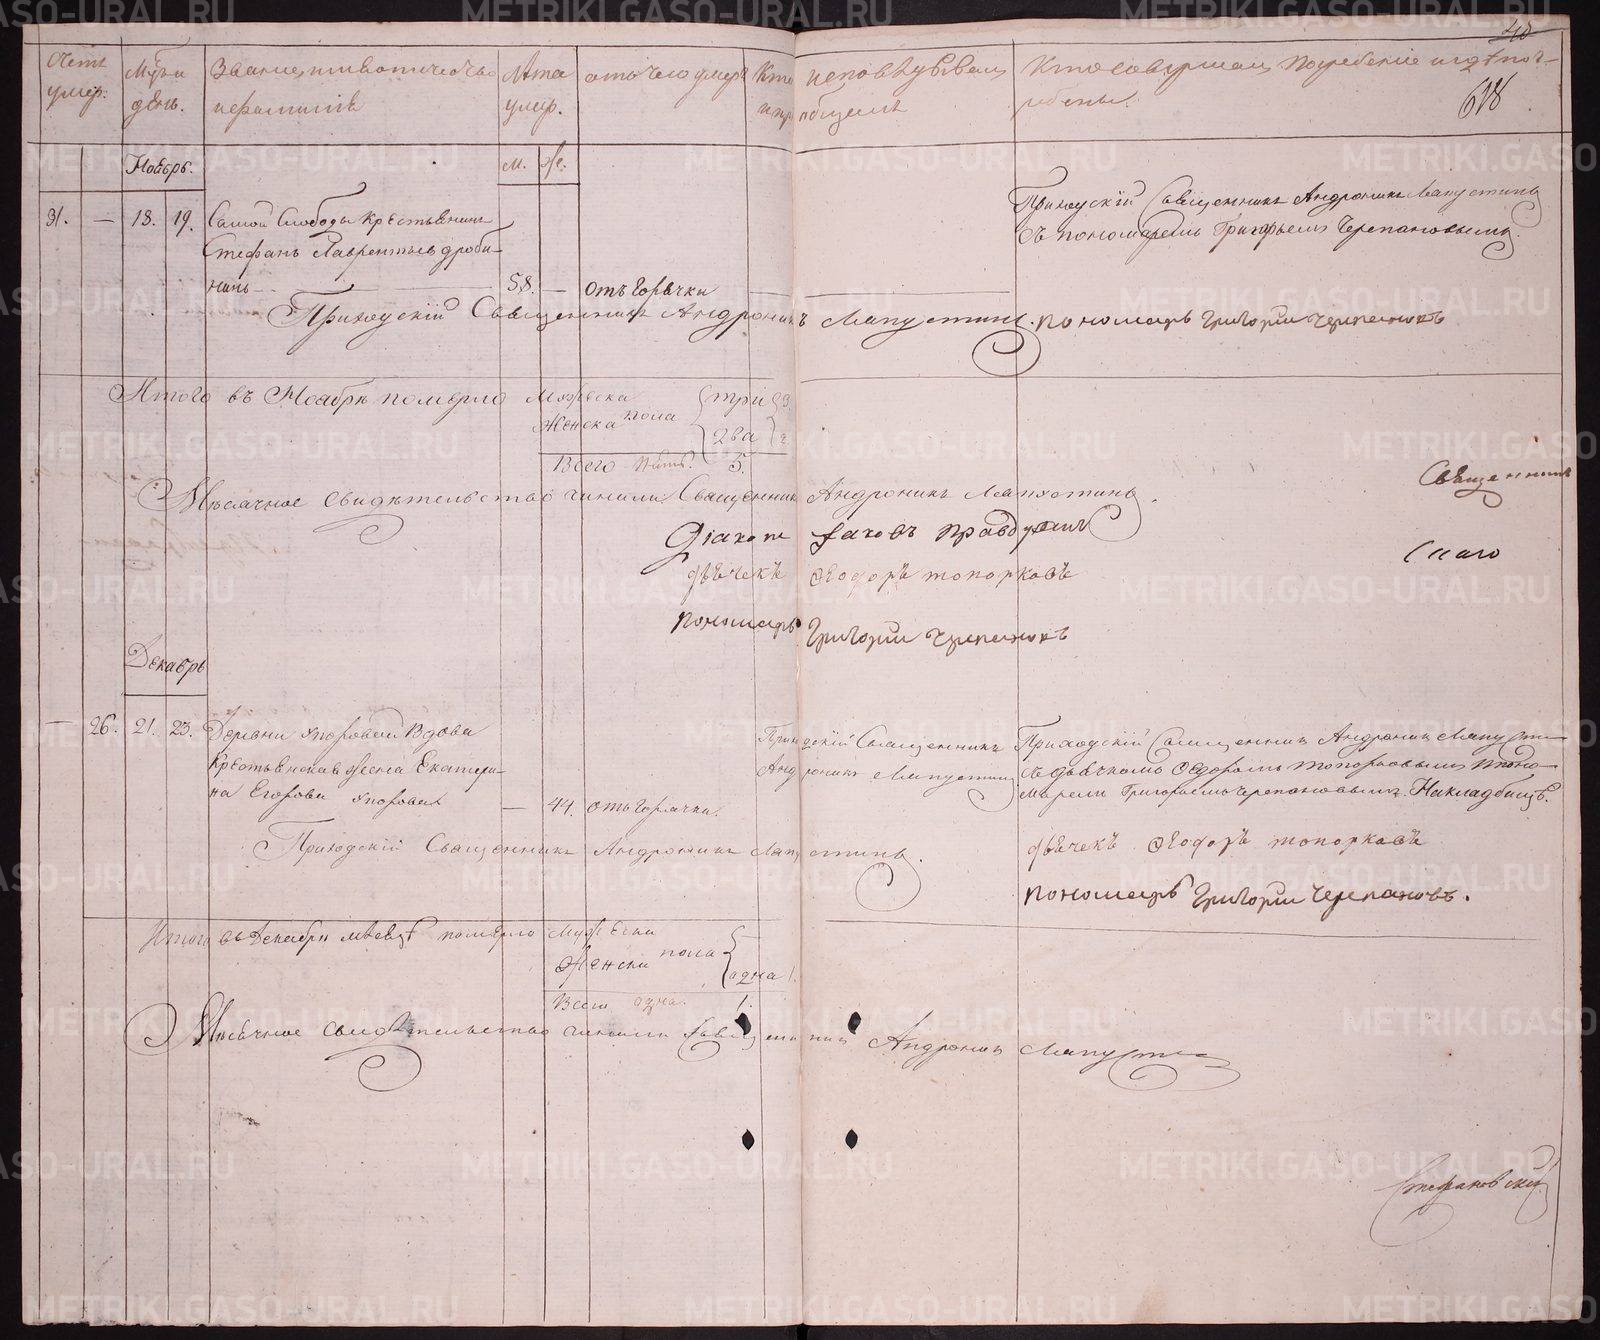 Счетъ умер:
Мѣсцъ и день.
Званіе, имя отечество и фамилія
Лѣта умер.
отъ чего умеръ
Кто исповѣдывалъ и пріобщалъ
Кто совершалъ погребеніе и гдѣ погребены.
618
Ноябрь.
м. ж.
31. — 18. 19. Самой Слободы Крестьянинъ
Стефанъ Лаврентьевъ Дроби-
нинъ — 58. — отъ горячки
Приходскій Священникъ Андроникъ Лапустинъ
съ пономаремъ Григорьемъ Черепановымъ.
Приходскій Священникъ Андроникъ Лапустинъ. пономарь Григорий Черепановъ
Итого въ Ноябрѣ померло Мужеска три 3
Женска пола два 2
Всего пять. 5.
Мѣсячное свидѣтельство чинили Священникъ Андроникъ Лапустинъ.
Священникъ
Діаконъ Іаковъ Правдухинъ
дьячекъ Ѳеодоръ Топорковъ
пономарь Григорий Черепановъ
Декабрь
— 26. 21. 23. Деревни Вдова
Крестьянская жена Екатери-
на Егорова — 44. отъ горячки.
Приходскій Священникъ
Андроникъ Лапустинъ
Приходскій Священникъ Андроникъ Лапустинъ
съ дьячкомъ Ѳедоромъ Топорковымъ и поно-
маремъ Григорьемъ Черепановымъ. На кладбищѣ.
Приходскій Священникъ Андроникъ Лапустинъ.
дьячекъ Ѳеодоръ Топорковъ
пономарь Григорий Черепановъ.
Итого въ Декабрѣ мѣсяцѣ померло Мужеска
Женска пола одна 1.
Всего одна. 1.
Мѣсячное свидѣтельство чинили Священникъ Андроникъ Лапустинъ
METRIKI.GASO-URAL.RU